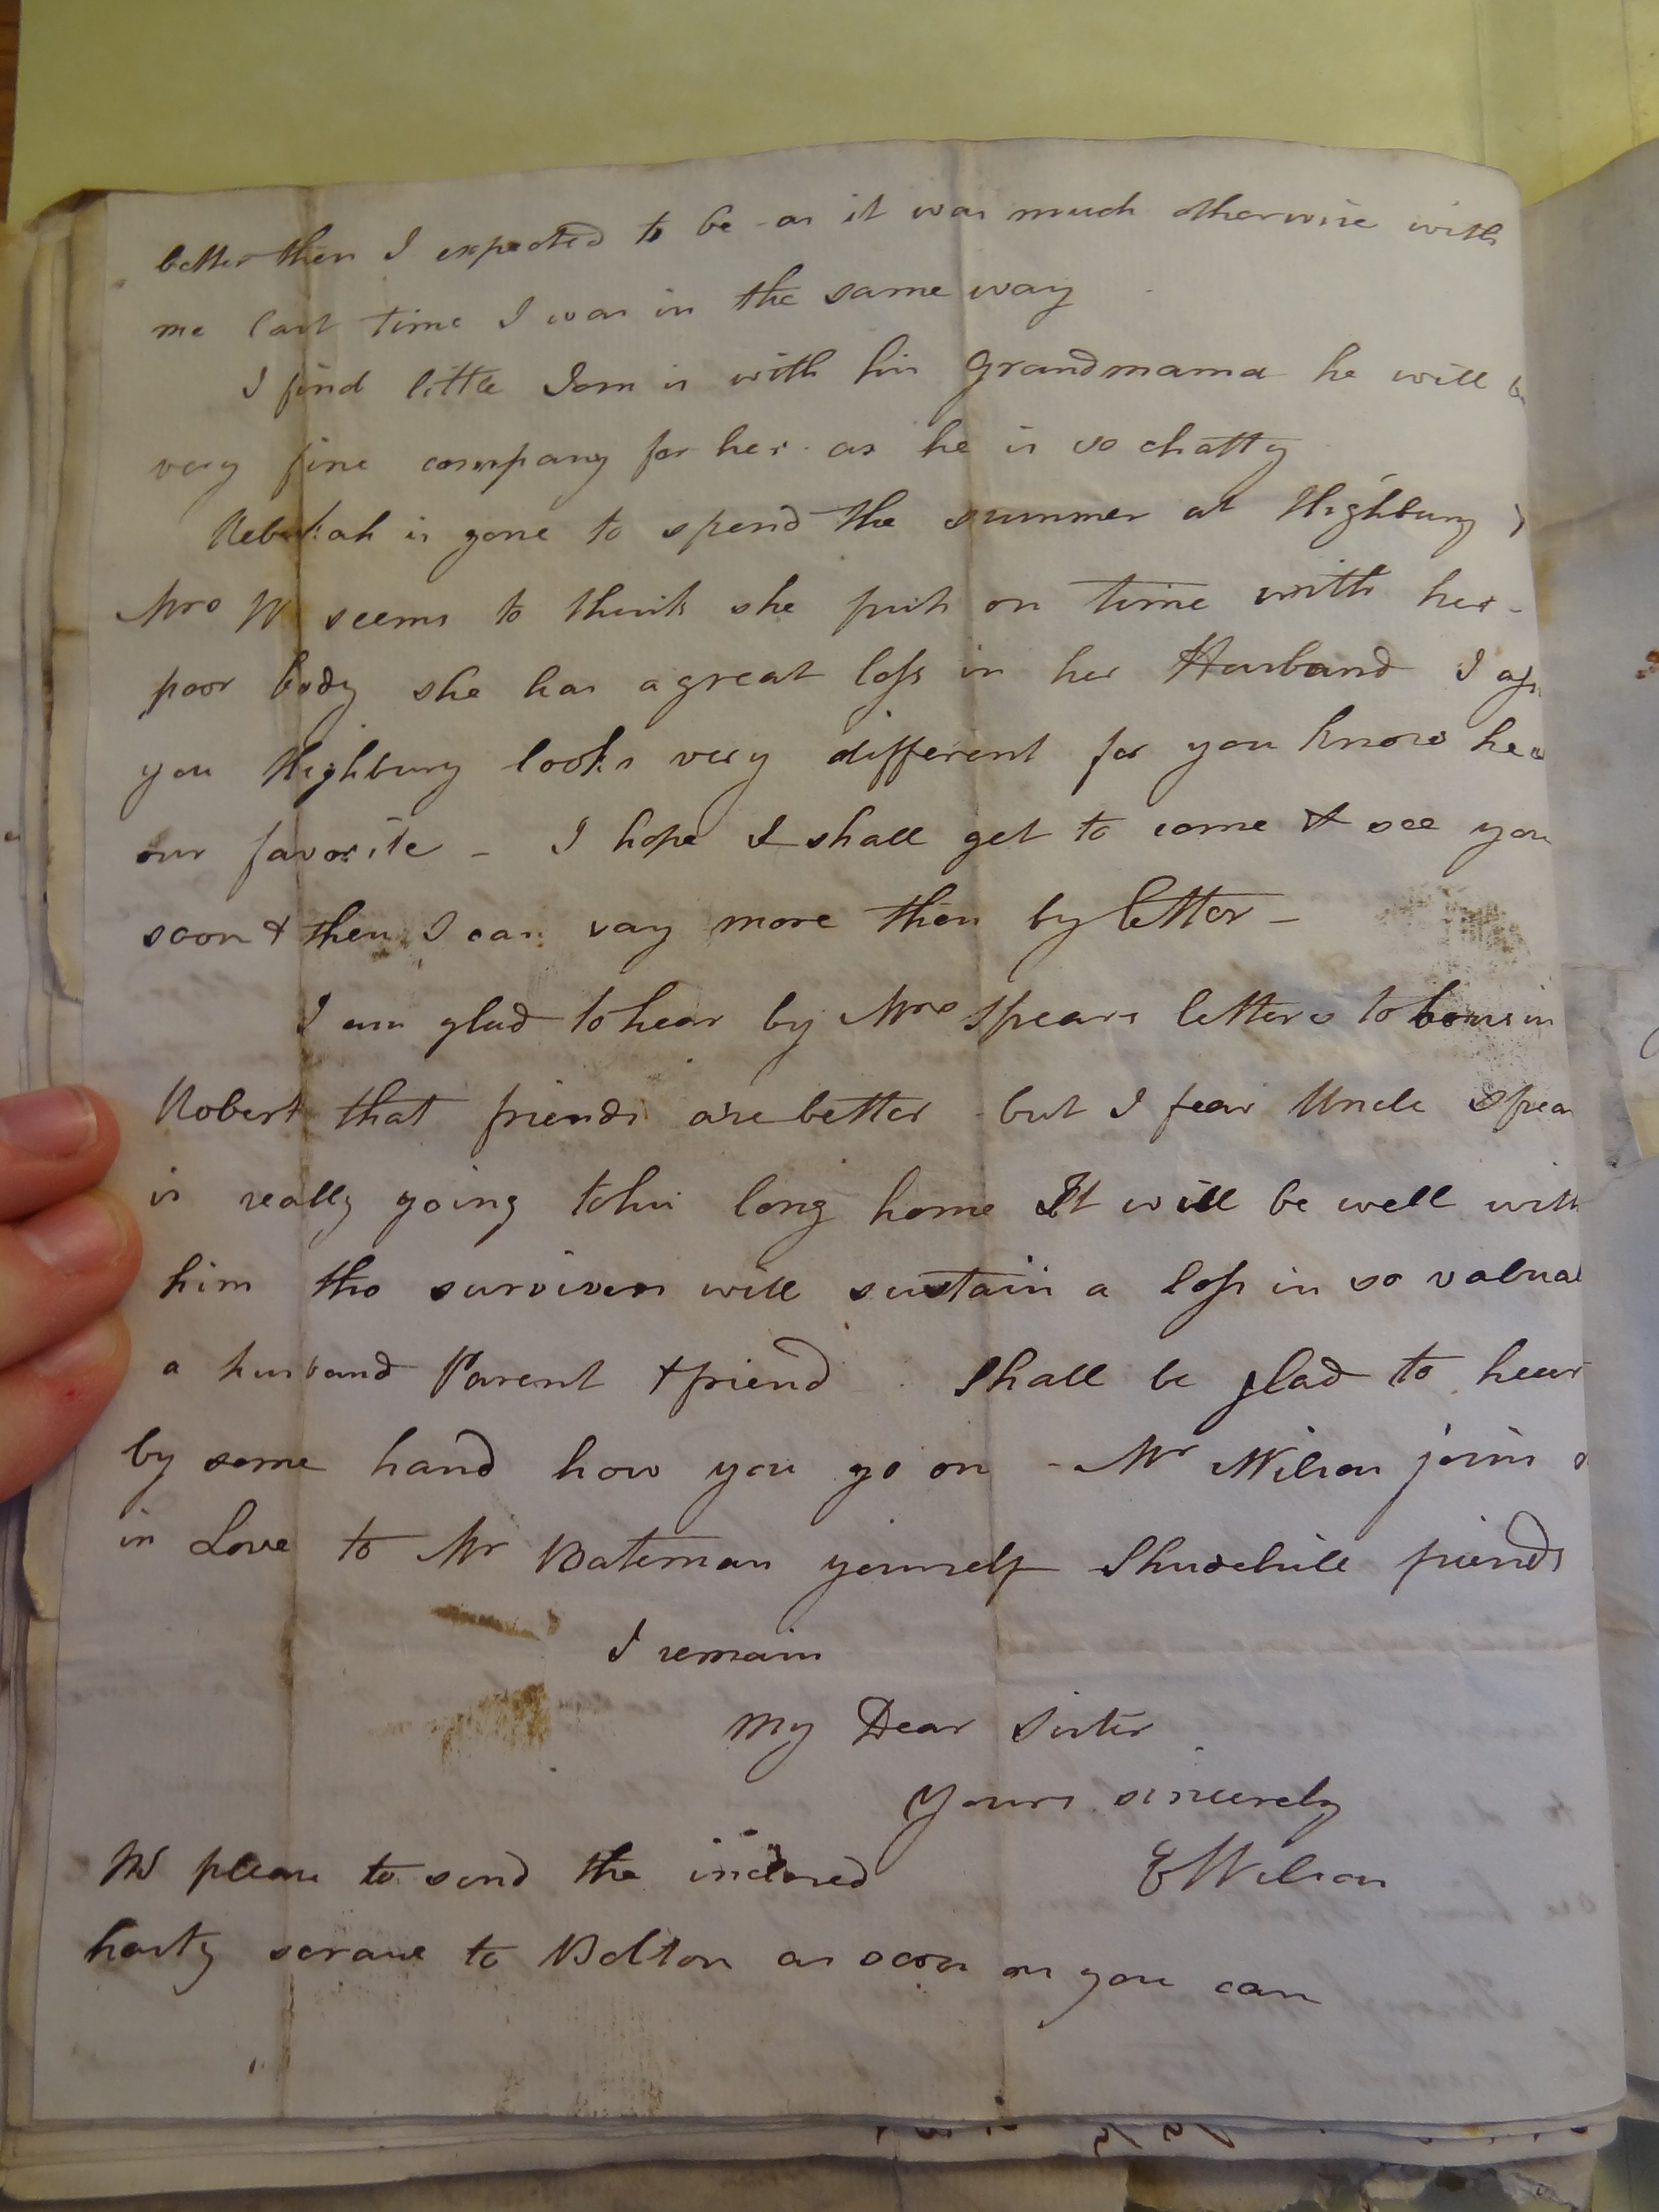 better then I expected to be as it was much otherwise with
me last time I was in the same way
I find little Tom is with his Grandmama he will
very fine company for her as he is so chatty
Rebekah is gone to spend the summer at Highbury &
Mrs W seems to think she puts on time with her -
poor body she has a great loss in her Husband I
you Highbury looks very different for you know he
our favorite - I hope I shall get to come & see you
soon & then I can say more then by letter -
I am glad to hear by Mrs Spears letters to Cousin
Robert that friends are better but I fear Uncle Spear
is really going to his long home It will be well with
him tho survivers will sustain a loss in so valuab
a husband Parent & friend Shall be glad to hear
by some hand how you go on - Mr Wilson joins
in Love to Mr Bateman yourself Shudehill friends
I remain
My Dear Sister
Yours sincerely
NB please to send the inclosed E Wilson
hasty scrawl to Bolton as soon as you can